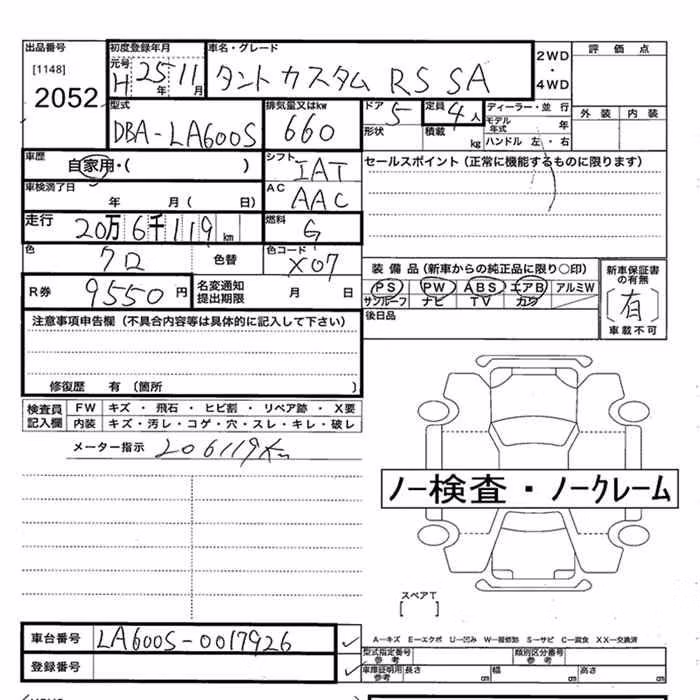 出品番号 初度登録年月 車名・グレード 2WD・4WD 評価点
[1148] 元号 H 25年 11月 タント カスタム RS SA 外装 内装
2052
型式 DBA-LA600S 排気量又はkw 660 ドア 5 定員 4人 ディーラー・並行
形状 積載 kg モデル年式 年
ハンドル 左・右
車歴 自家用・( ) シフト IAT セールスポイント(正常に機能するものに限ります)
車検満了日 年 月( 日) AC AAC
走行 20万6千119km 燃料 G
色 クロ 色替 色コード X07
装備品(新車からの純正品に限り○印) 新車保証書の有無
PS PW ABS エアB アルミW 〔有〕
サンルーフ ナビ TV カワ 車載不可
R券 9550円 名変通知提出期限 月 日
後日品
注意事項申告欄(不具合内容等は具体的に記入して下さい)
修復歴 有〔箇所 〕
検査員記入欄 FW キズ・飛石・ヒビ割・リペア跡・X要
内装 キズ・汚レ・コゲ・穴・スレ・キレ・破レ
メーター指示 206119Km
ノー検査・ノークレーム
スペアT
[ ]
車台番号 LA600S-0017926
A-キズ E-エクボ U-凹み W-補修跡 S-サビ C-腐食 XX-交換済
登録番号
型式指定番号 参考 類別区分番号 参考
車庫証明用 参考 長さ cm 幅 cm 高さ cm